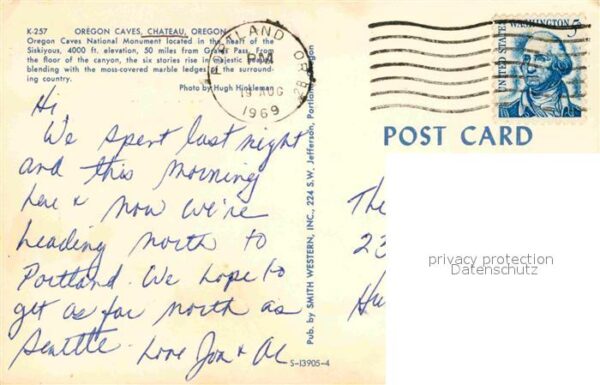 K-257 OREGON CAVES, CHATEAU, OREGON
Oregon Caves National Monument located in the heart of the
Siskiyous, 4000 ft. elevation, 50 miles from Grants Pass. From
the floor of the canyon, the six stories rise in majestic beauty
blending with the moss-covered marble ledges of the surround-
ing country.
Photo by Hugh Hinkleman
Hi
We spent last night
and this morning
here & now we're
heading north to
Portland. We hope to
get as far north as
Seattle. Love Jon & Al
S-13905-4
Pub. by SMITH WESTERN, INC., 224 S.W. Jefferson, Portland, Oregon
PM
19 AUG
1969
WASHINGTON 5c
UNITED STATES
POST CARD
The
23
Hu
privacy protection
Datenschutz